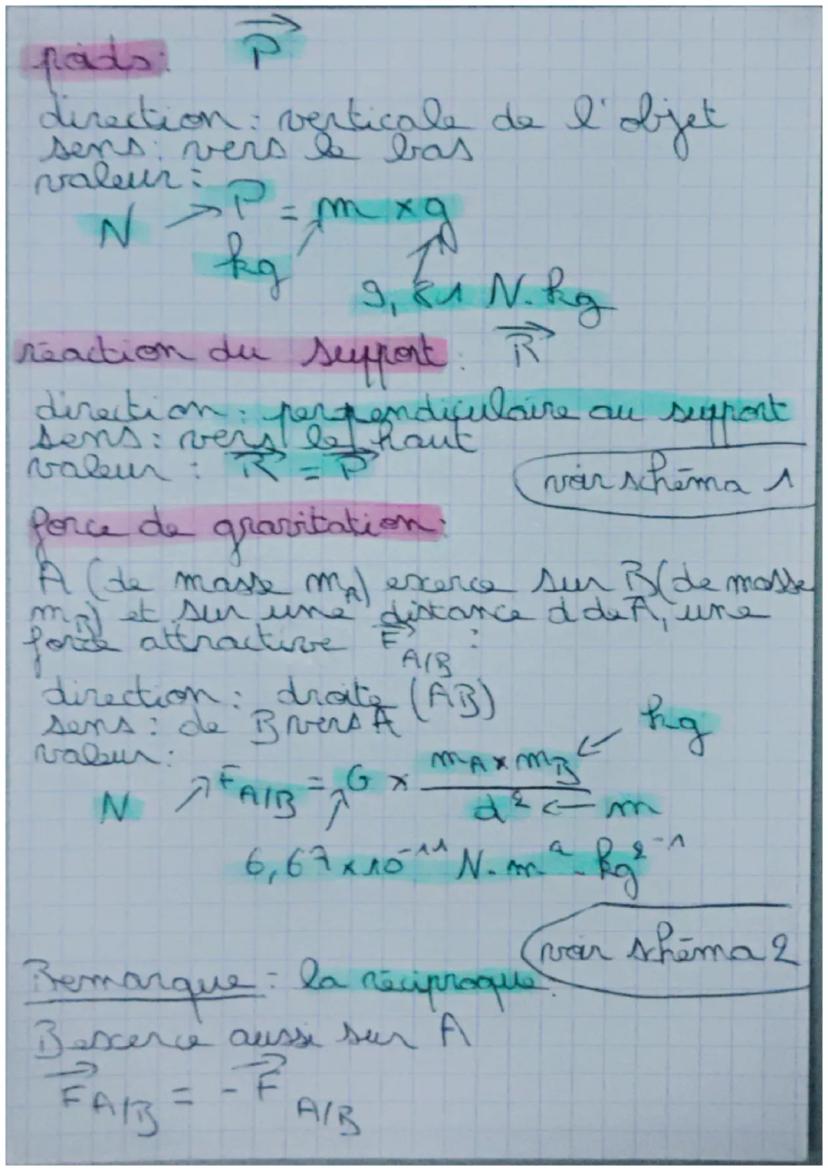 poids: P
direction: verticale de l'objet
sens: vers le bas
valeur:
N → P = m × g
kg
9,81 N.kg
réaction du support: R
direction: perpendiculaire au support
sens: vers le haut
valeur: R = P
voir schéma 1
force de gravitation:
A (de masse mA) exerce sur B (de masse
mB) et sur une distance d de A, une
force attractive F A/B :
direction: droite (AB)
sens: de B vers A
valeur:
kg
N → F A/B = G × mA × mB / d² ← m
6,67 × 10⁻¹¹ N.m².kg²⁻¹
voir schéma 2
Remarque: la réciproque
B exerce aussi sur A
F A/B = -F A/B